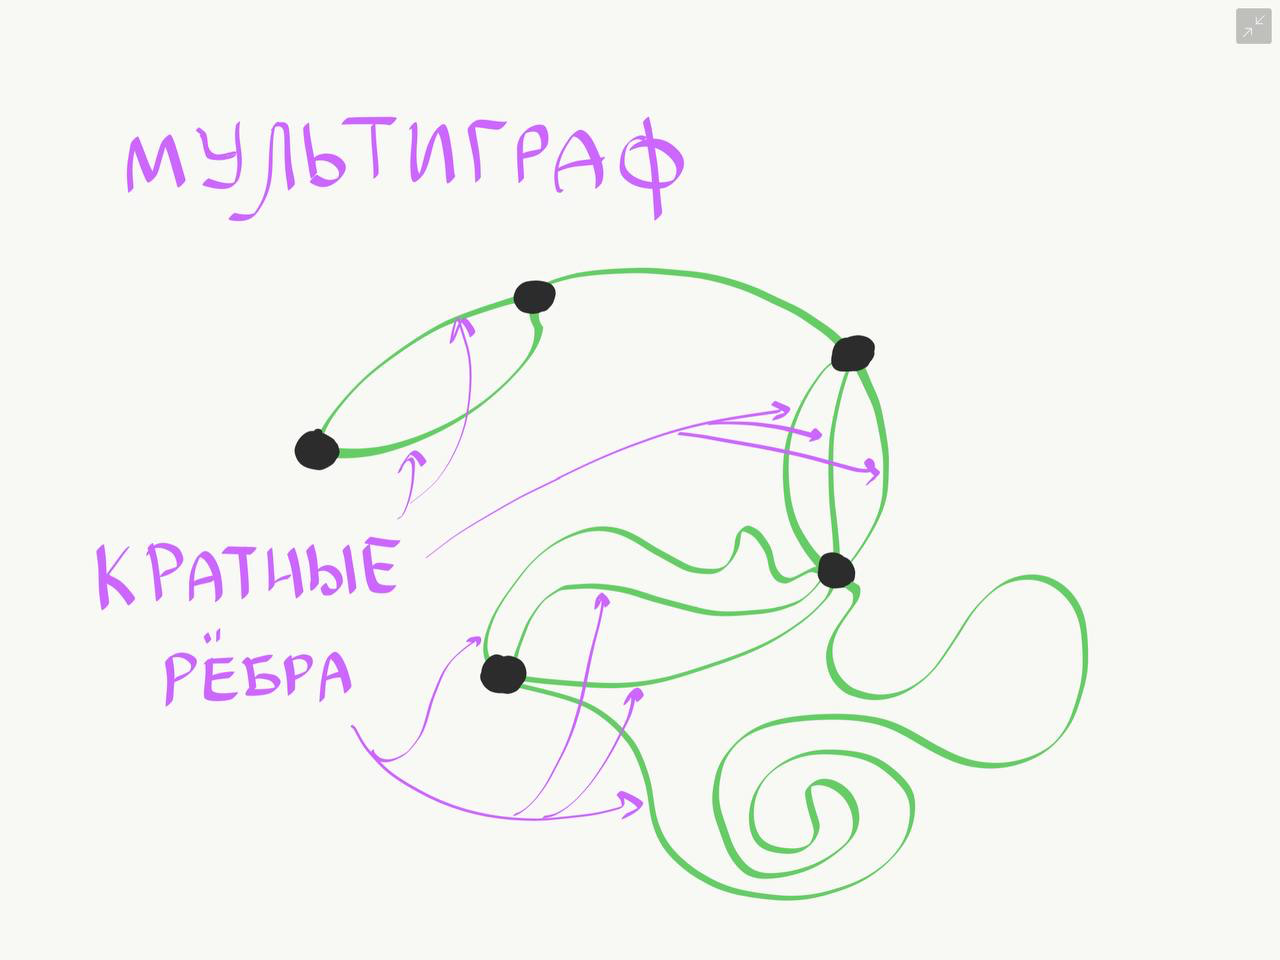 МУЛЬТИГРАФ
КРАТНЫЕ
РЁБРА